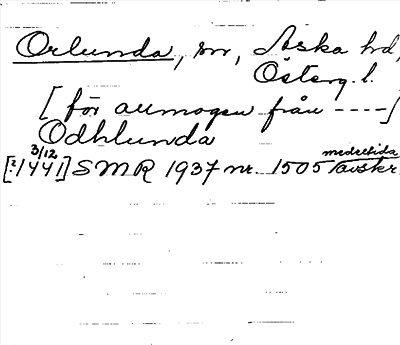 Orlunda, sn, Aska hd,
Österg. l.
[för allmogen från ----]
Odhlunda
3/12 medeltida
[?1441] SMR 1937 nr. 1505 avskr.